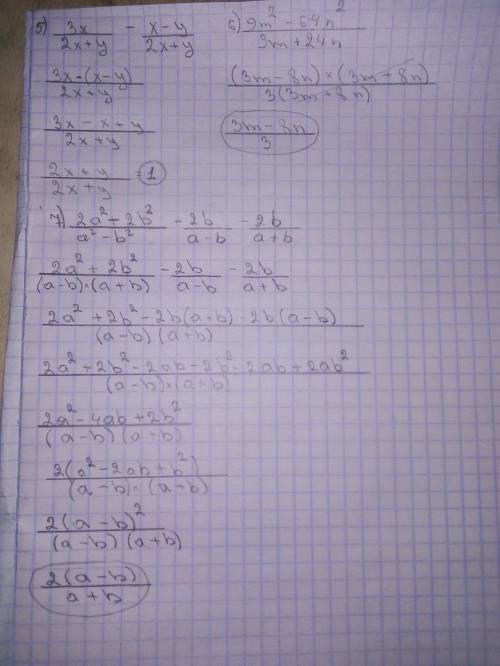 5) 3x/(2x+y) - (x-y)/(2x+y)
(3x-(x-y))/(2x+y)
(3x-x+y)/(2x+y)
(2x+y)/(2x+y) = 1
6) (9m²-64n²)/(9m+24n)
((3m-8n)×(3m+8n))/(3(3m+8n))
(3m-8n)/3
7) (2a²+2b²)/(a²-b²) - 2b/(a-b) - 2b/(a+b)
(2a²+2b²)/((a-b)×(a+b)) - 2b/(a-b) - 2b/(a+b)
(2a²+2b²-2b(a+b)-2b(a-b))/((a-b)(a+b))
(2a²+2b²-2ab-2b²-2ab+2ab²)/((a-b)×(a+b))
(2a²-4ab+2b²)/((a-b)(a+b))
2(a²-2ab+b²)/((a-b)×(a+b))
2(a-b)²/((a-b)(a+b))
2(a-b)/(a+b)